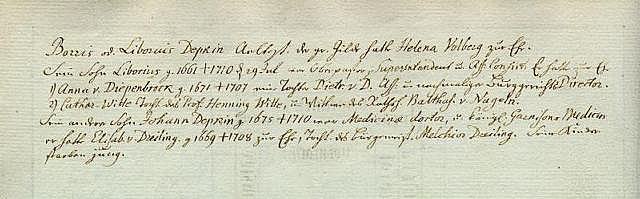 Borris od. Liborius Depkin Aeltest. der gr. Gilde hatte Helena Volberg zur Ehe.
Sein Sohn Liborius g. 1661 †1710 d 29 Jul war Oberpastor, Superintendent u. Ass. Consist. Er hatte zur E.
1) Anna v. Diepenbrock g. 1671 †1707 eine Tochter Dietr. v. D. Ass. u. nachmaliger Burggerichts Director.
2) Cathar. Witte Tocht. des Prof. Henning Witte, u. Wittwe des Rathsh. Balthas. v. Nageln.
Sein andrer Sohn Johann Depkin g. 1675 †1710 war Medicinae doctor, u. königl. Garnisons Medicus
er hatte Elisab. v. Dreiling. g. 1669 †1708 zur Ehe, Tocht. des Bürgermeist. Melchior Dreiling. Seine Kinder
starben jung.